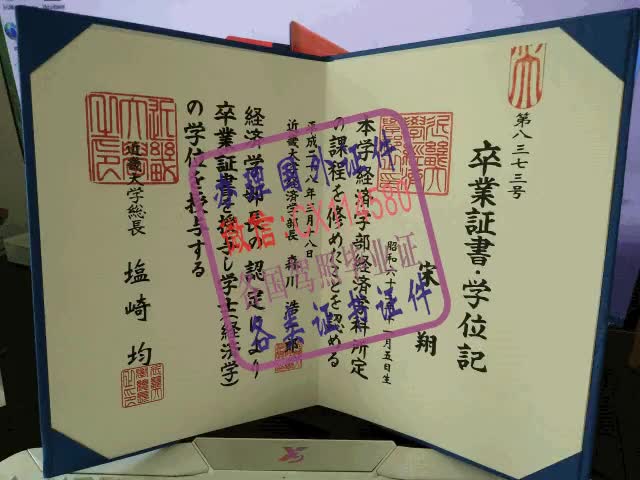 第八三七三号
卒業証書・学位記
宋 翔
昭和六十
月五日生
本学経済学部経済学科所定
の課程を修めたことを認める
平成二十八年三月十八日
近畿大学経済学部長 森川 浩
経済学部長の認定により
卒業証書を授与し学士(経済学)
の学位を授与する
近畿大学総長 塩崎 均
国外证件
微信:CX114580
各国驾照毕业证
各类证书证件